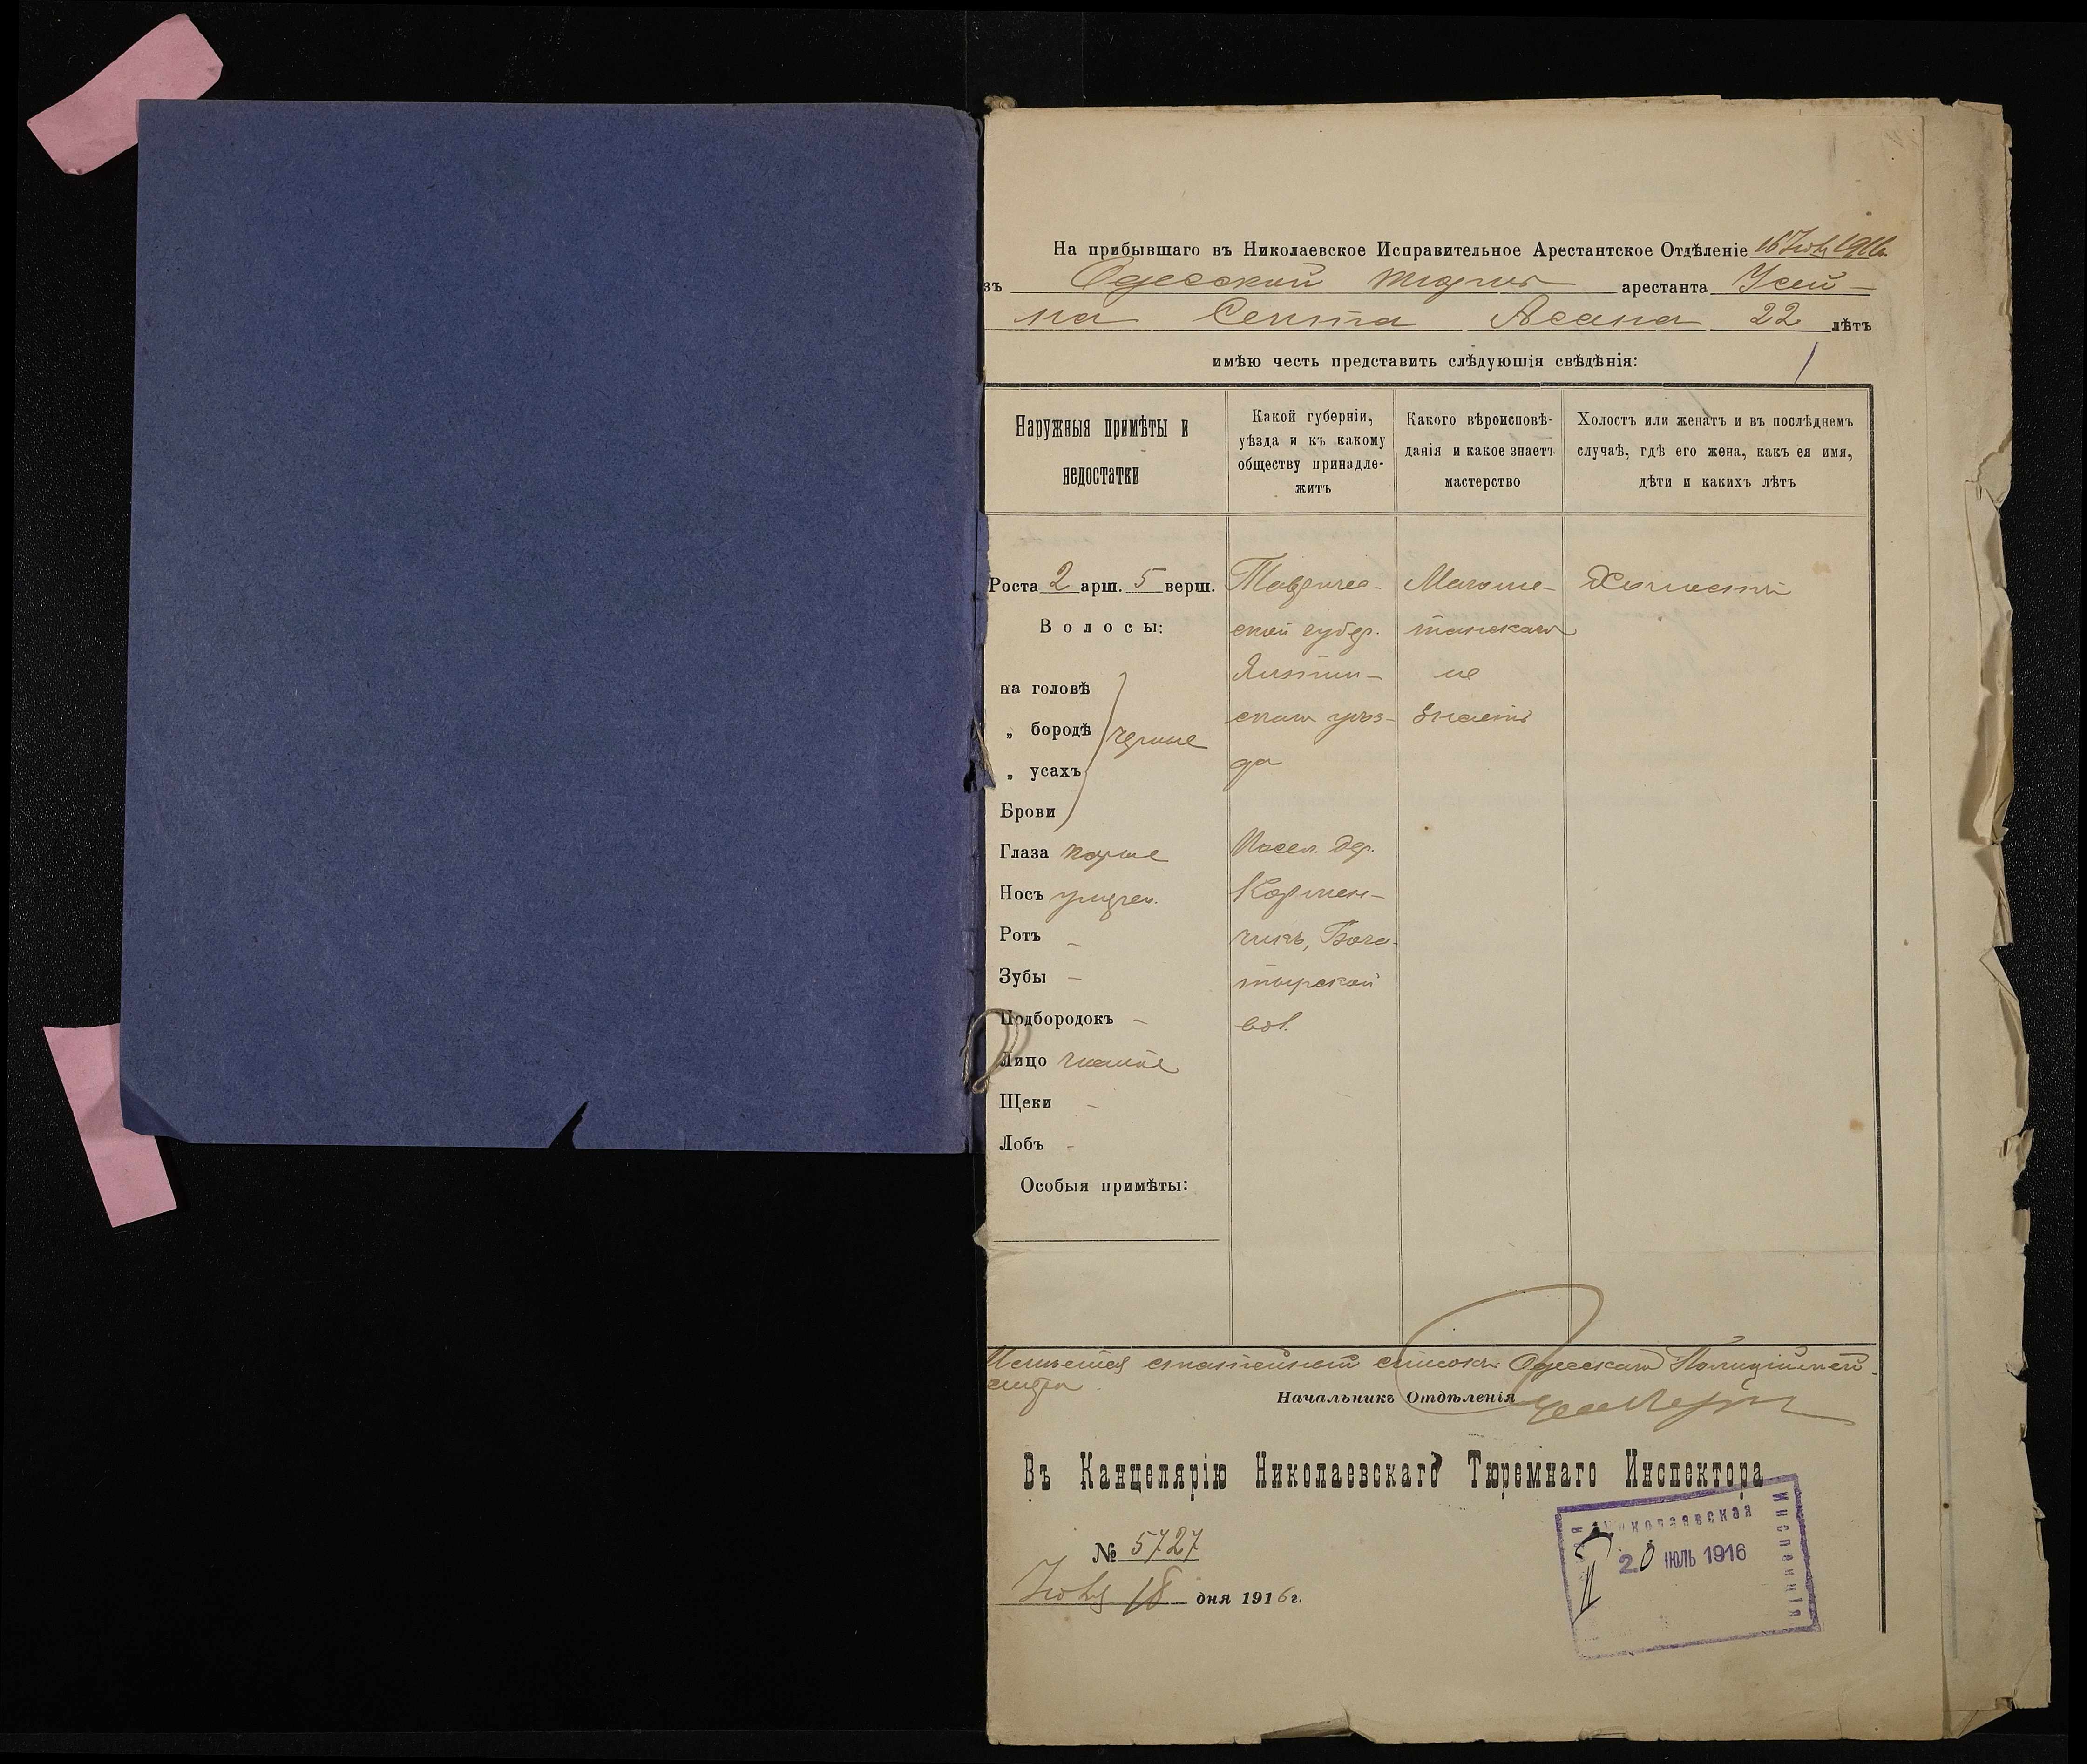 На прибывшаго въ Николаевское Исправительное Арестантское Отдѣленіе 16 Іюля 1916 г.
зъ Одесской тюрьмы арестанта Усеи-
на Сеита Асана 22 лѣтъ
имѣю честь представить слѣдующія свѣдѣнія:
Наружныя примѣты и
недостатки
Какой губерніи,
уѣзда и къ какому
обществу принадле-
житъ
Какого вѣроисповѣ-
данія и какое знаетъ
мастерство
Холостъ или женатъ и въ послѣднемъ
случаѣ, гдѣ его жена, какъ ея имя,
дѣти и какихъ лѣтъ
Роста 2 арш. 5 верш.
Волосы:
на головѣ
„ бородѣ черные
„ усахъ
Брови
Глаза карые
Носъ умѣрен.
Ротъ -
Зубы -
Подбородокъ -
Лицо чистое
Щеки -
Лобъ -
Особыя примѣты:
Тавричес-
кой губер.
Ялтин-
скаго уѣз-
да
Посел. дер.
Кармен-
чикъ, Бога-
тырской
вол.
Магоме-
танскаго
не
знаетъ
Холостъ
Имѣется статейный списокъ Одесскаго Полицій
Начальникъ Отдѣленія
Въ Канцелярію Николаевскаго Тюремнаго Инспектора
№ 5727
Іюля 18 дня 1916 г.
Николаевская
Инспекція
20 ІЮЛЬ 1916